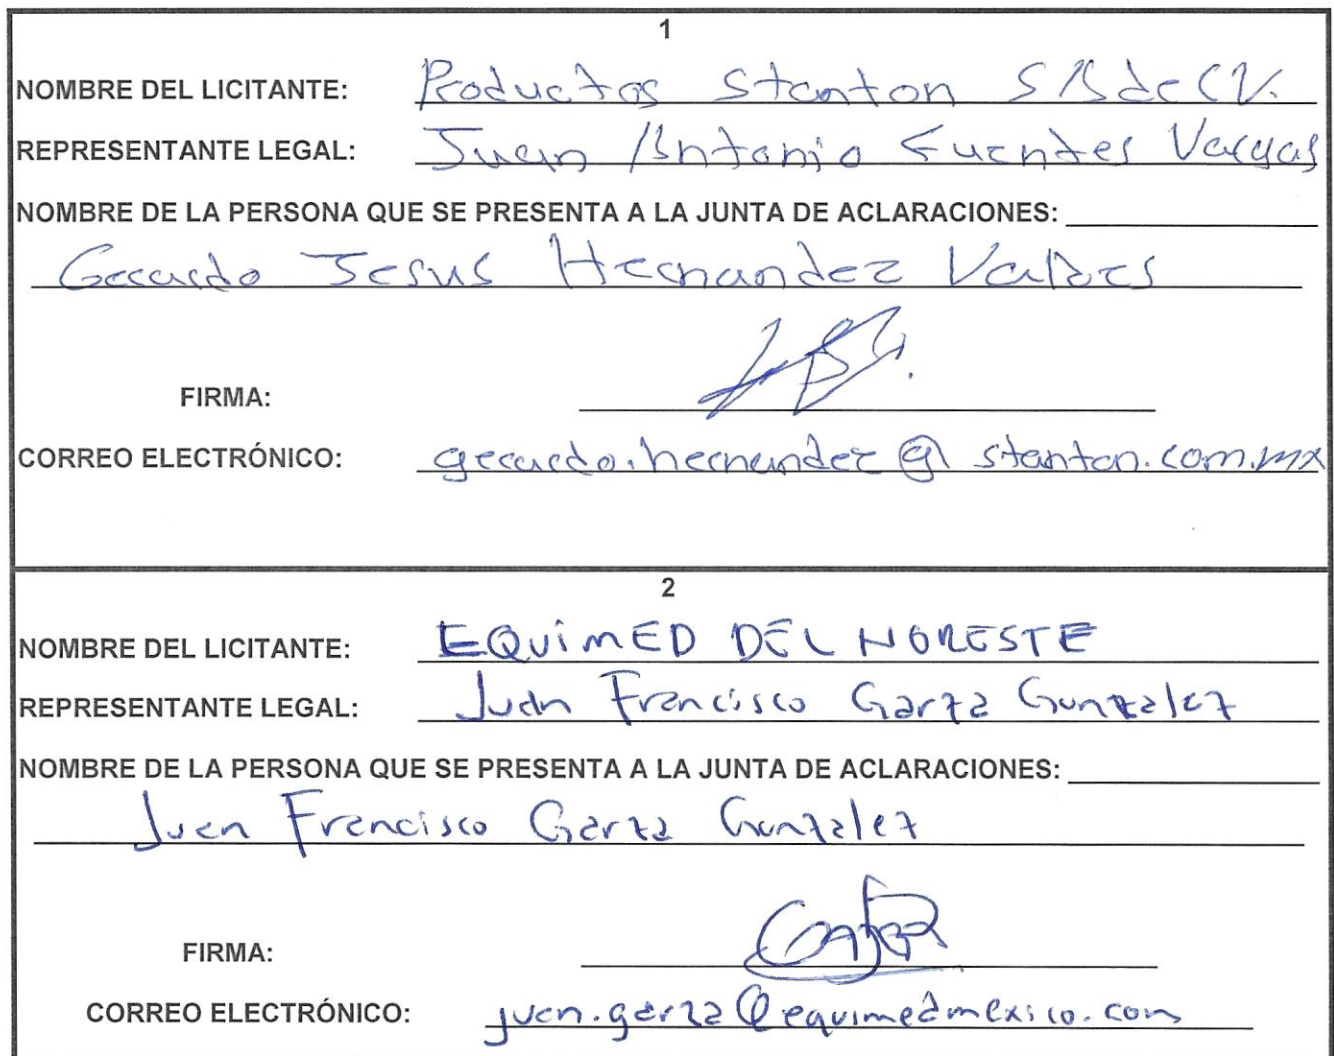 1
NOMBRE DEL LICITANTE: Productos Stanton SA de CV.
REPRESENTANTE LEGAL: Juan Antonio Fuentes Vargas
NOMBRE DE LA PERSONA QUE SE PRESENTA A LA JUNTA DE ACLARACIONES:
Gerardo Jesus Hernandez Valdes
FIRMA:
CORREO ELECTRÓNICO: gerardo.hernandez@stanton.com.mx
2
NOMBRE DEL LICITANTE: EQUiMED DEL NORESTE
REPRESENTANTE LEGAL: Juan Francisco Garza Gonzalez
NOMBRE DE LA PERSONA QUE SE PRESENTA A LA JUNTA DE ACLARACIONES:
Juan Francisco Garza Gonzalez
FIRMA:
CORREO ELECTRÓNICO: juan.garza@equimedmexico.com